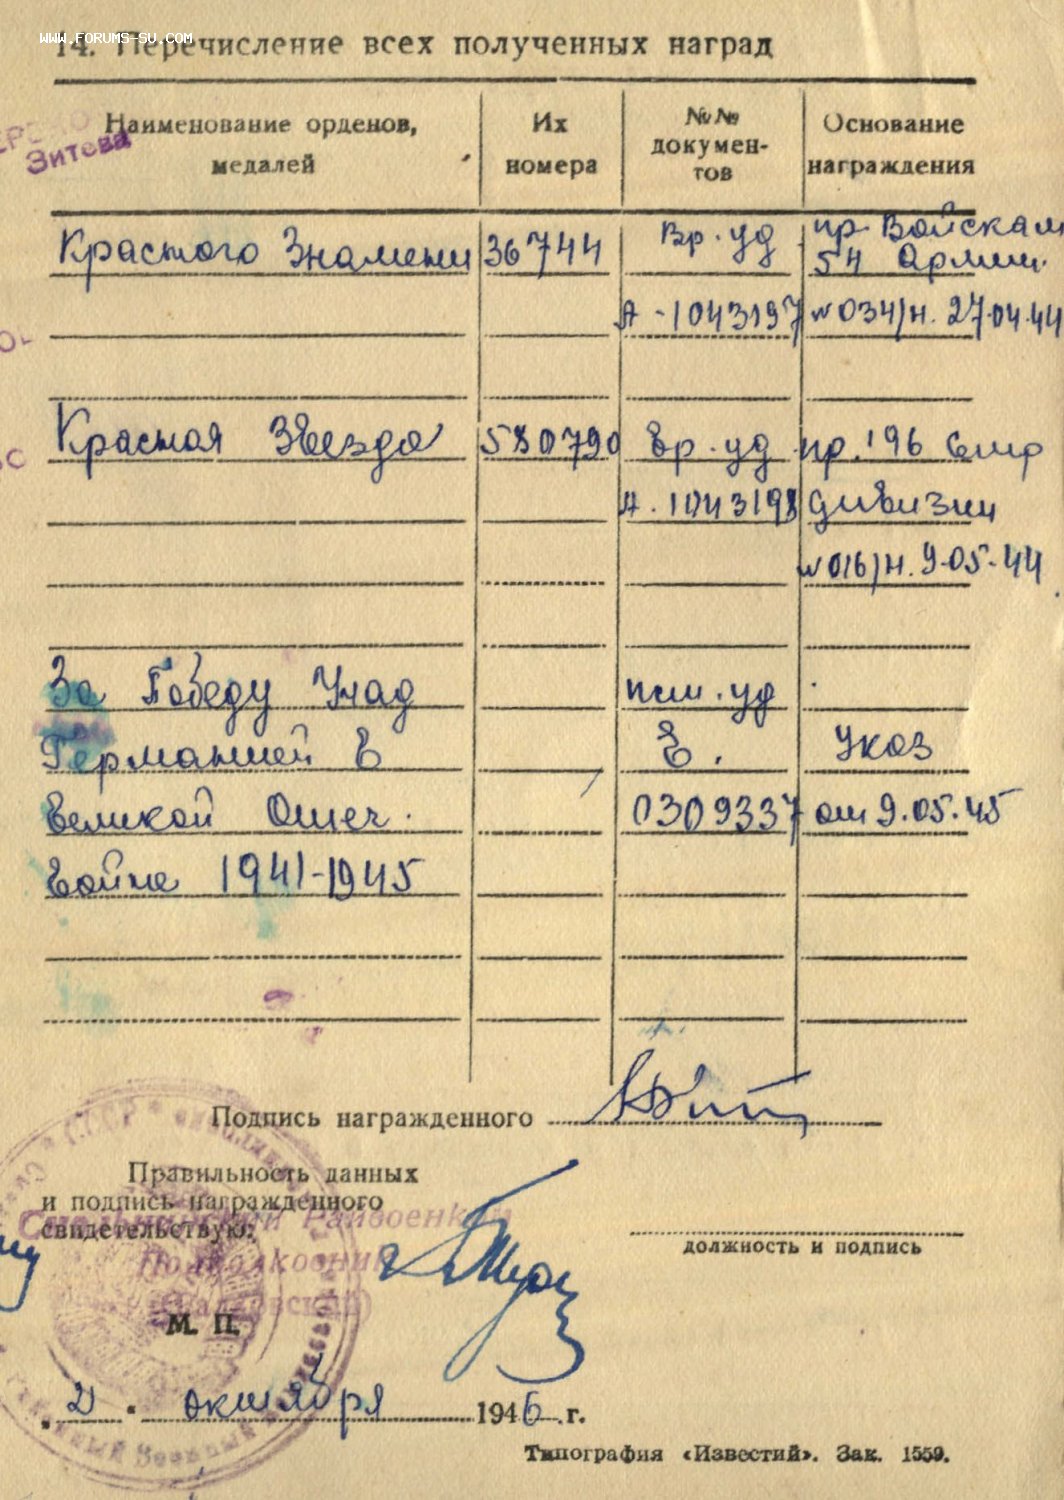 www.forums-su.com
14. Перечисление всех полученных наград
Наименование орденов, медалей | Их номера | №№ документов | Основание награждения
Зитева
Красного Знамени | 36744 | Вр. уд | пр. Войскам
54 Армии.
А-1043197 | №034/н. 27.04.44
Красная Звезда | 580790 | Вр. уд | пр. 196 Стр
А.1043198 | дивизии
№016/н. 9.05.44
За Победу над | уд
Германией в | Е. | Указ
Великой Отеч. | 0309337 | от 9.05.45
Войне 1941-1945
Подпись награжденного
Правильность данных
и подпись награжденного
свидетельствую:
Райвоенком
Подполковник
должность и подпись
М. П.
"2" октября 1946 г.
Типография «Известий». Зак. 1559.